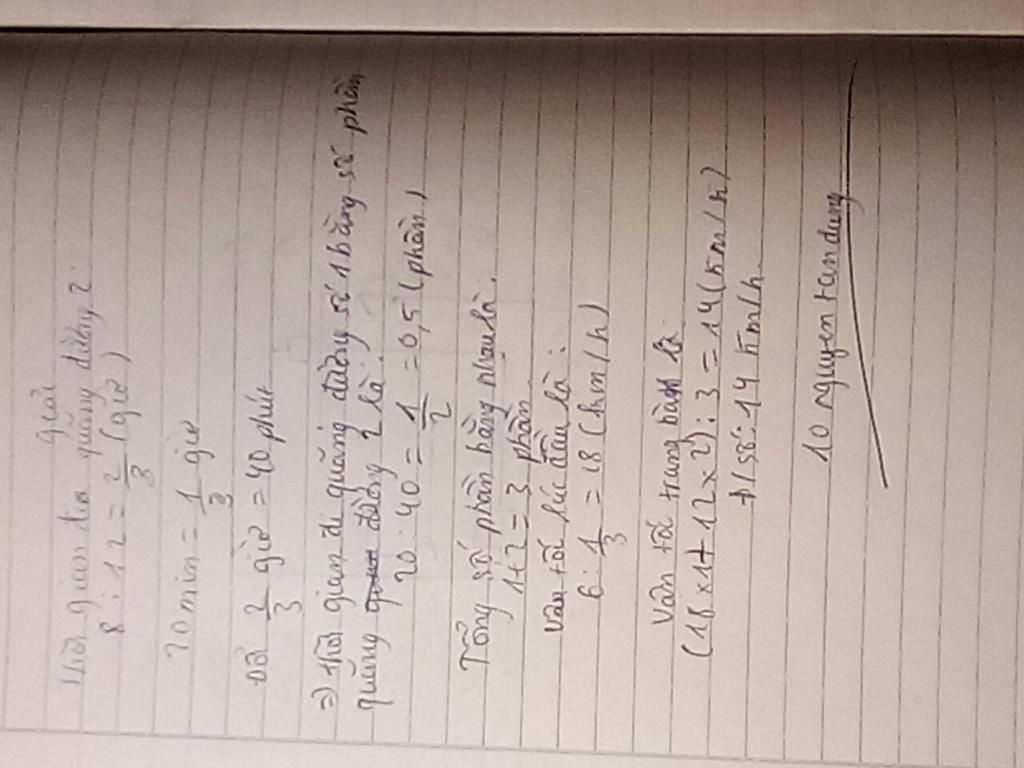 giải
thời gian đia quãng đường 2:
8 : 12 = 2/3 (giờ)
20 min = 1/3 giờ
Đổi 2/3 giờ = 40 phút
=> thời gian đi quãng đường số 1 bằng số phần
quãng đường 2 là:
20 : 40 = 1/2 = 0,5 (phần)
Tổng số phần bằng nhau là:
1+2 = 3 phần
Vận tốc lúc đầu là:
6 : 1/3 = 18 (km/h)
Vận tốc trung bành là
(18 x 1 + 12 x 2) : 3 = 14 (km/h)
Đ/số: 14 km/h
10 nguyen tan dung